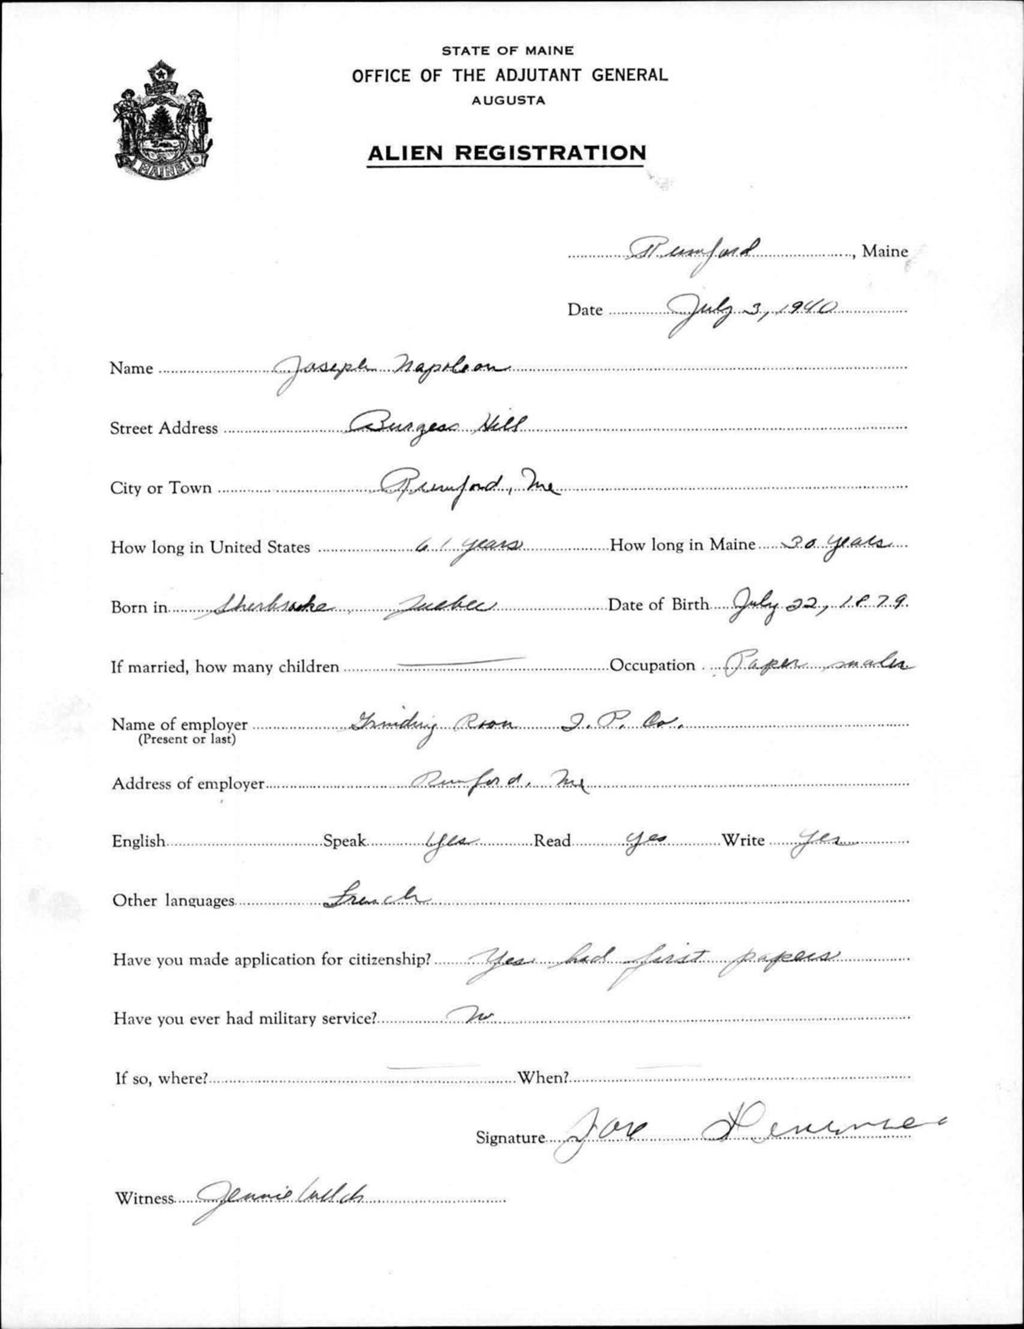 STATE OF MAINE
OFFICE OF THE ADJUTANT GENERAL
AUGUSTA
ALIEN REGISTRATION
MAINE
Rumford, Maine
Date July 3, 1940
Name Joseph Napoleon
Street Address Burgess Hill
City or Town Rumford, Me
How long in United States 61 years How long in Maine 30 years
Born in Sherbrooke Quebec Date of Birth July 22, 1879
If married, how many children — Occupation Paper maker
Name of employer Grinding Room I. P. Co.
(Present or last)
Address of employer Rumford, Me
English Speak Yes Read Yes Write Yes
Other languages French
Have you made application for citizenship? Yes had first papers
Have you ever had military service? No
If so, where? — When? —
Signature Joe
Witness Jennie Welch